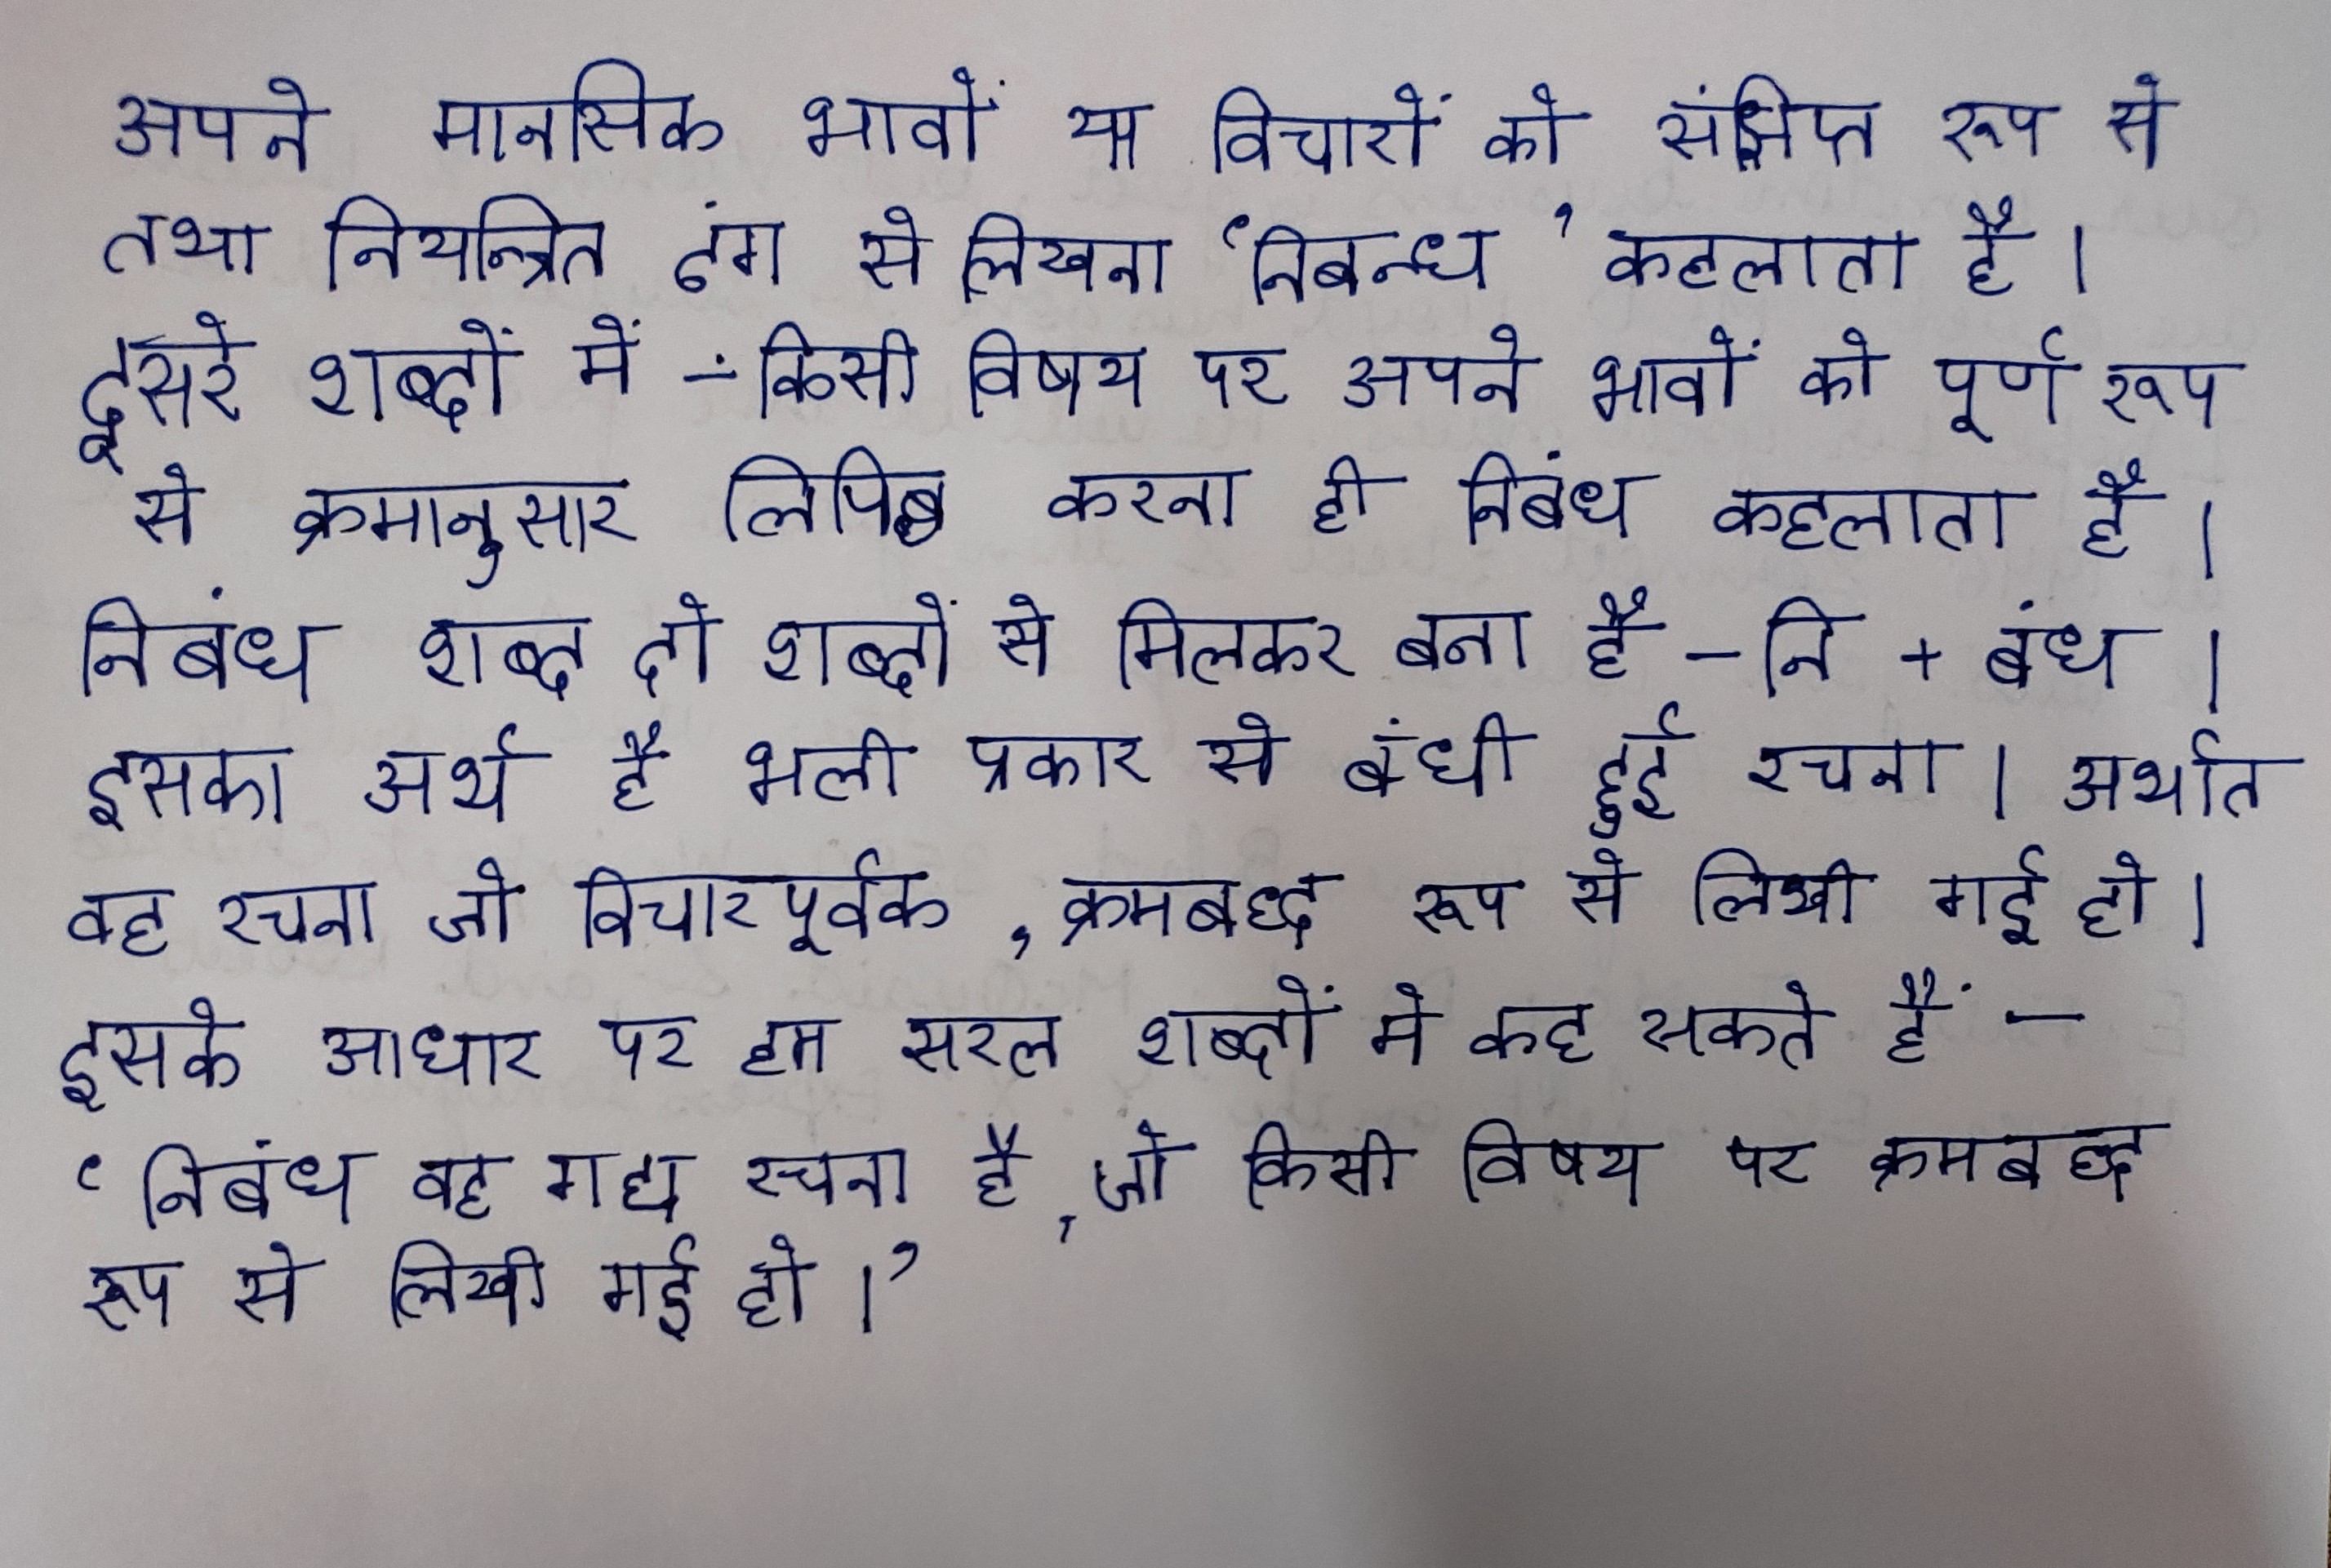 अपने मानसिक भावों या विचारों को संक्षिप्त रूप से
तथा नियन्त्रित ढंग से लिखना ‘निबन्ध’ कहलाता है।
दूसरे शब्दों में -: किसी विषय पर अपने भावों को पूर्ण रूप
से क्रमानुसार लिपिब करना ही निबंध कहलाता है।
निबंध शब्द दो शब्दों से मिलकर बना है - नि + बंध।
इसका अर्थ है भली प्रकार से बंधी हुई रचना। अर्थात
वह रचना जो विचारपूर्वक, क्रमबध्द रूप से लिखी गई हो।
इसके आधार पर हम सरल शब्दों मे कह सकते हैं -
‘निबंध वह गद्य रचना है, जो किसी विषय पर क्रमबध्द
रूप से लिखी गई हो।’